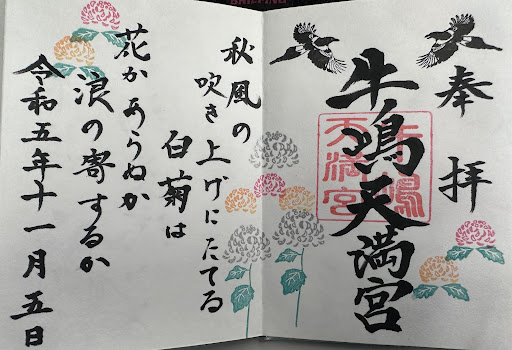 奉拝
牛嶋天満宮
牛嶋
天満宮
秋風の
吹き上げにたてる
白菊は
花かあらぬか
浪の寄するか
令和五年十一月五日